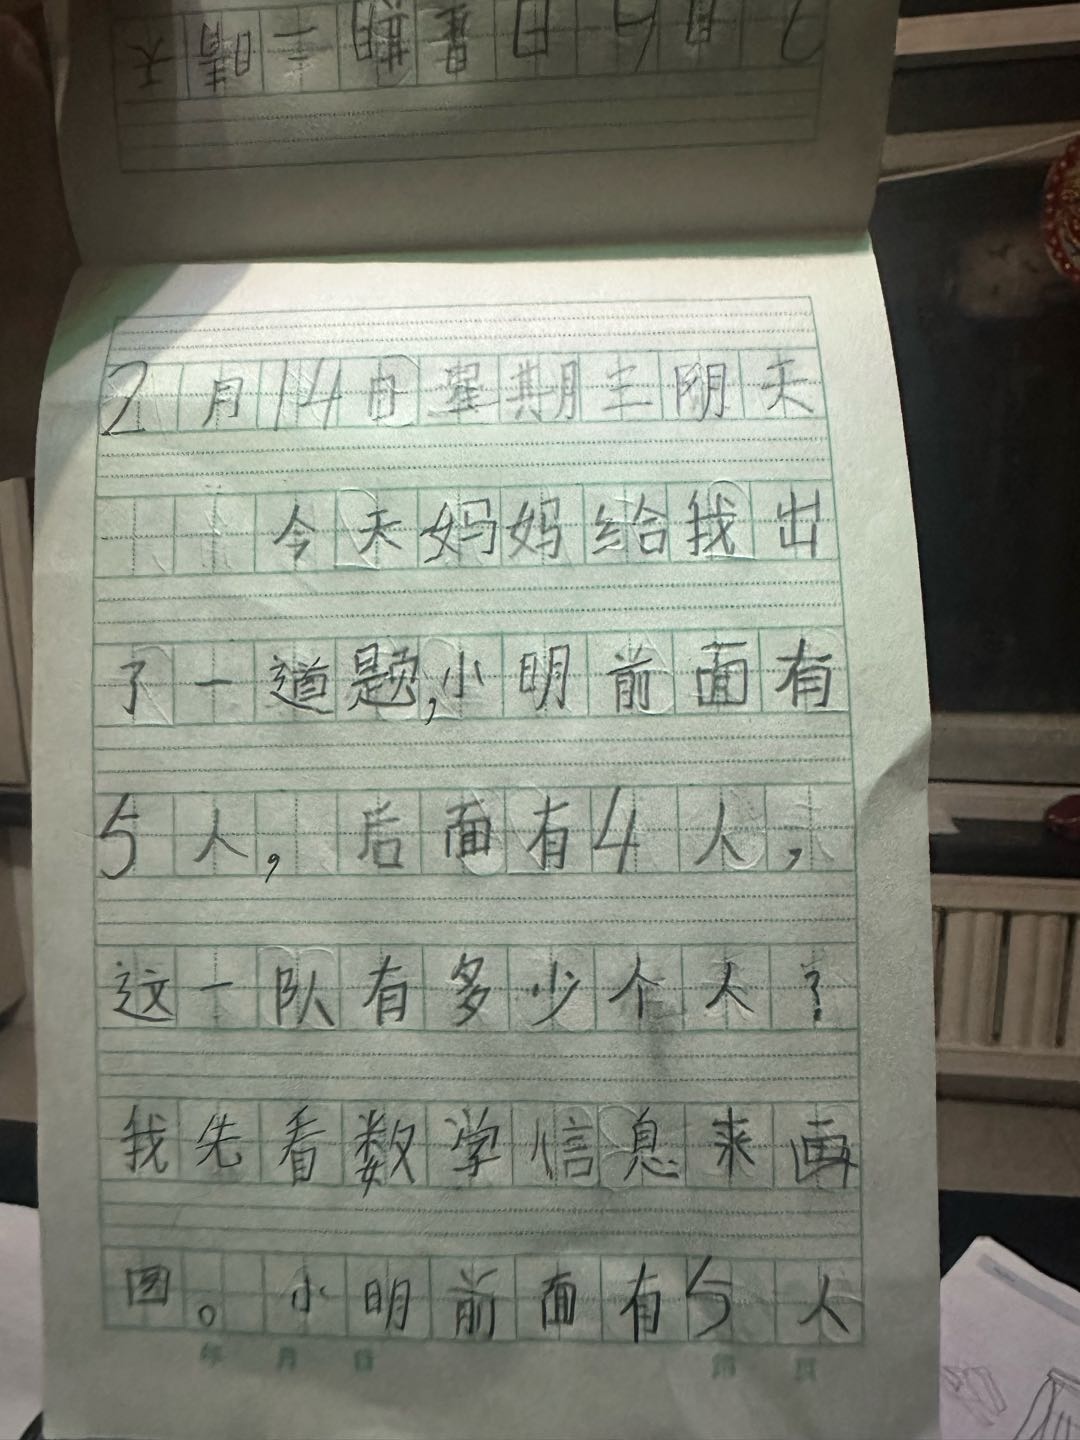 2月14日星期三阴天
今天妈妈给找出
了一道题,小明前面有
5人,后面有4人,
这一队有多少个人?
我先看数学信息来画
图。小明前面有5人
年 月 日